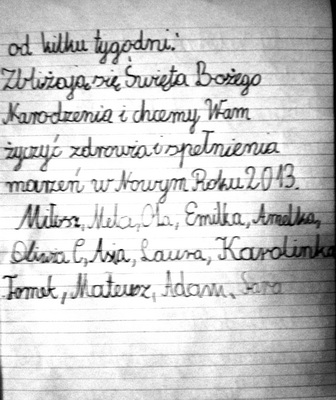 od kilku tygodni.
Zbliżają się Święta Bożego
Narodzenia i chcemy Wam
życzyć zdrowia i spełnienia
marzeń w Nowym Roku 2013.
Miłosz, Mela, Ola, Emilka, Amelka,
Oliwia C, Asia, Laura, Karolinka
Tomek, Mateusz, Adam, Sara